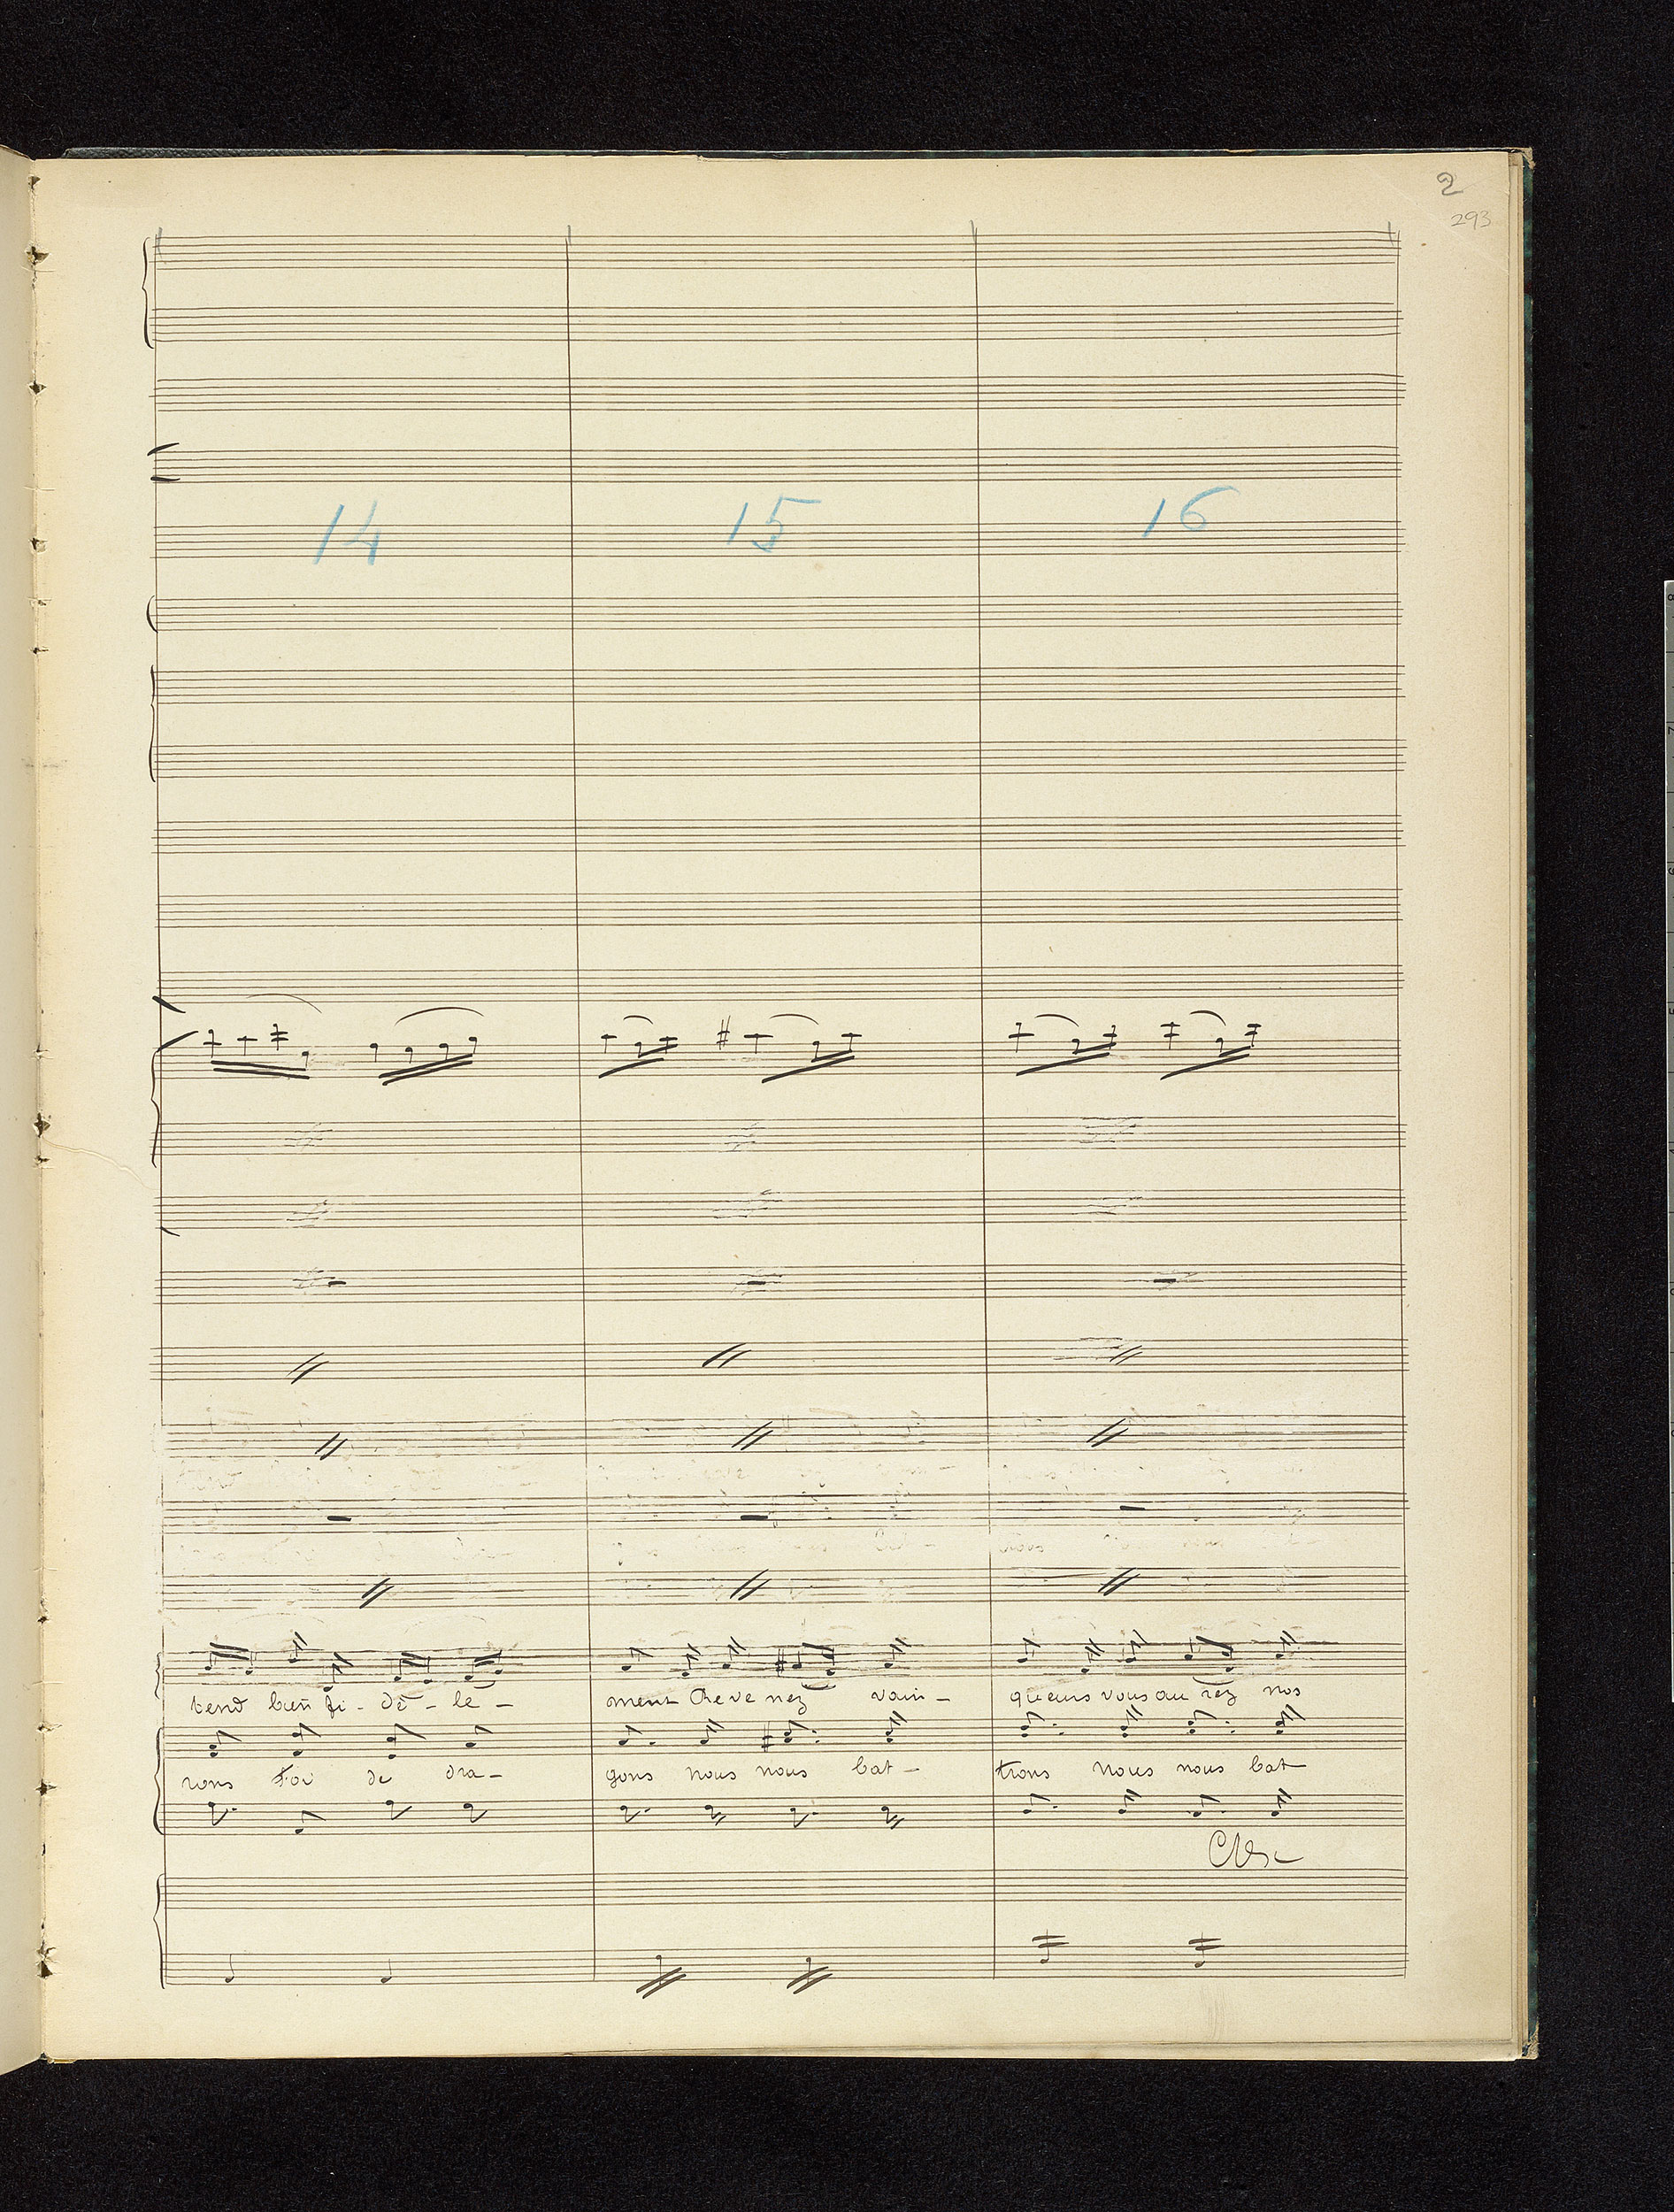 2
293
14 15 16
tend bien fi - dè - le - ment Reve nez vain - queurs vous au rez nos
rons Foi de dra - gons nous nous bat - trons nous nous bat